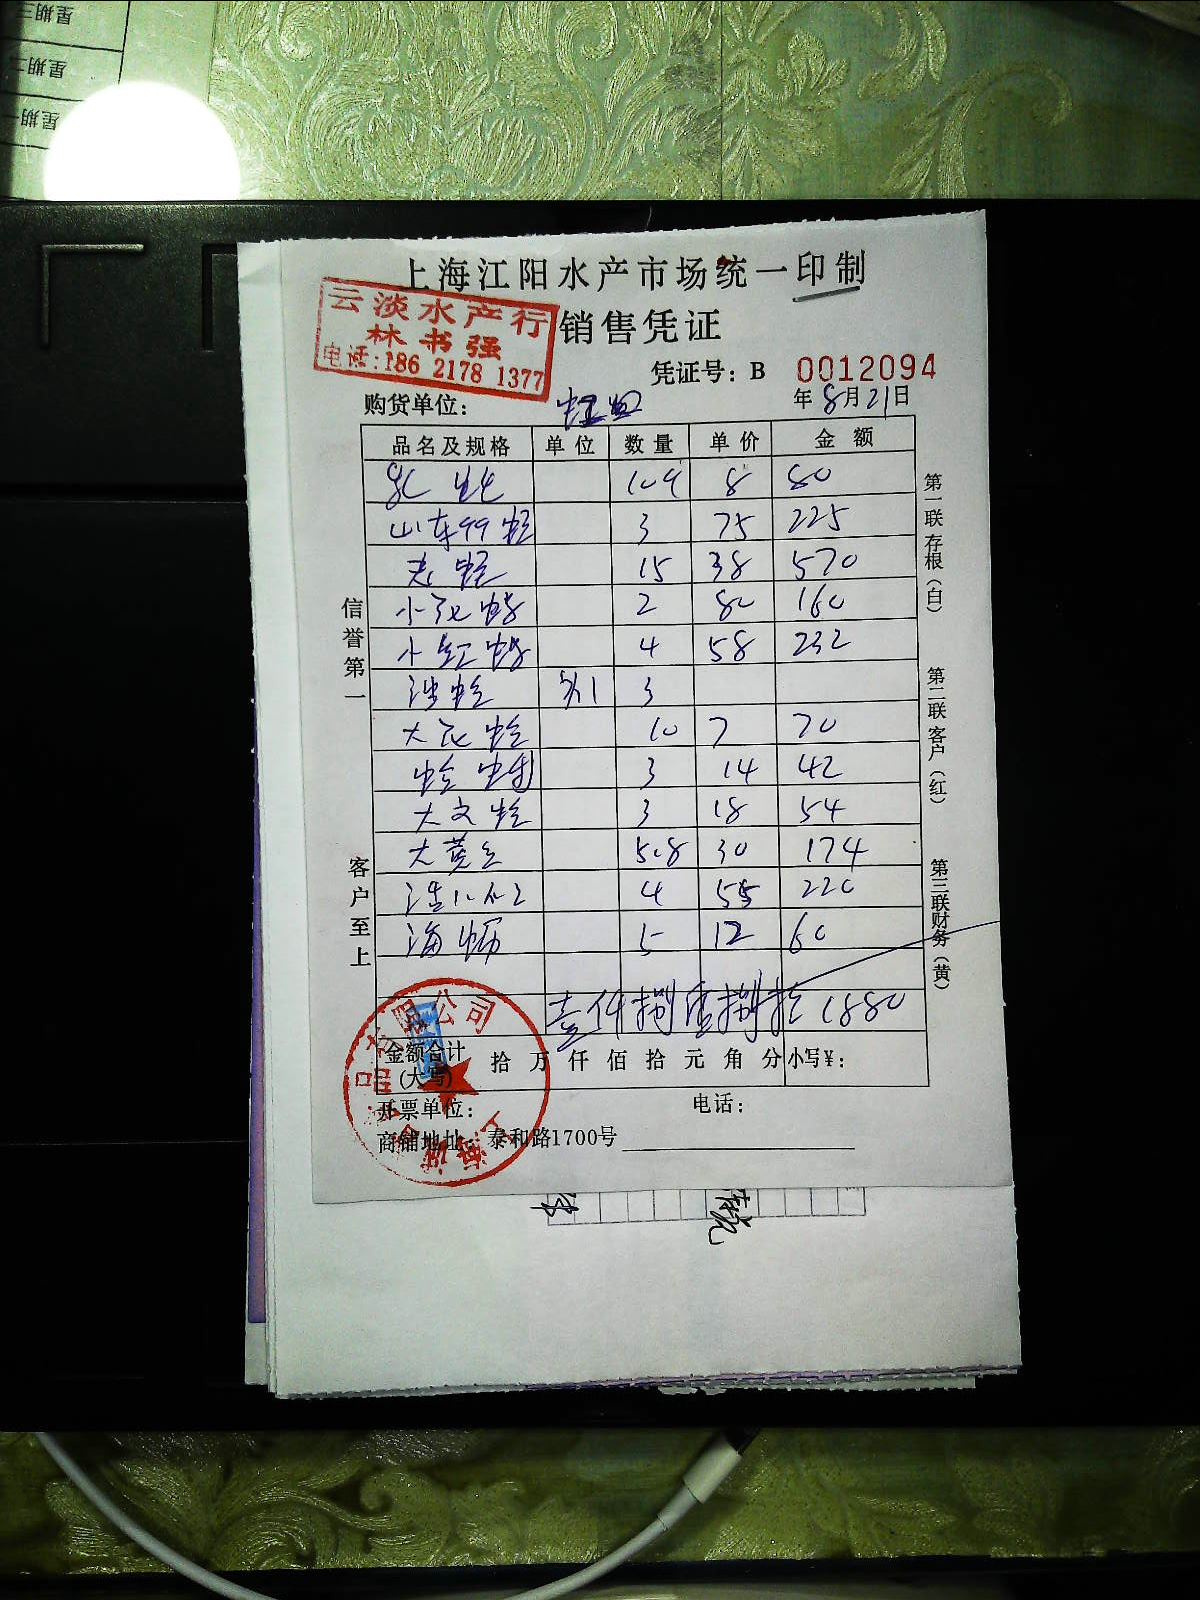 星期三
星期二
星期一
上海江阳水产市场统一印制
云淡水产行
林书强
电话:186 2178 1377
销售凭证
凭证号: B 0012094
购货单位:
年 8月21日
品名及规格 单位 数量 单价 金额
8 80
山东99蛏 3 75 225
15 38 570
小花螺 2 80 160
小红螺 4 58 232
3
大花蛤 10 7 70
3 14 42
大文蛤 3 18 54
大黄 5.8 30 174
4 55 220
海蛎 5 12 60
壹仟捌佰捌拾 1880
金额合计
(大写) 拾 万 仟 佰 拾 元 角 分 小写¥:
开票单位: 电话:
商铺地址: 泰和路1700号
信誉第一
客户至上
第一联 存根(白)
第二联 客户(红)
第三联 财务(黄)